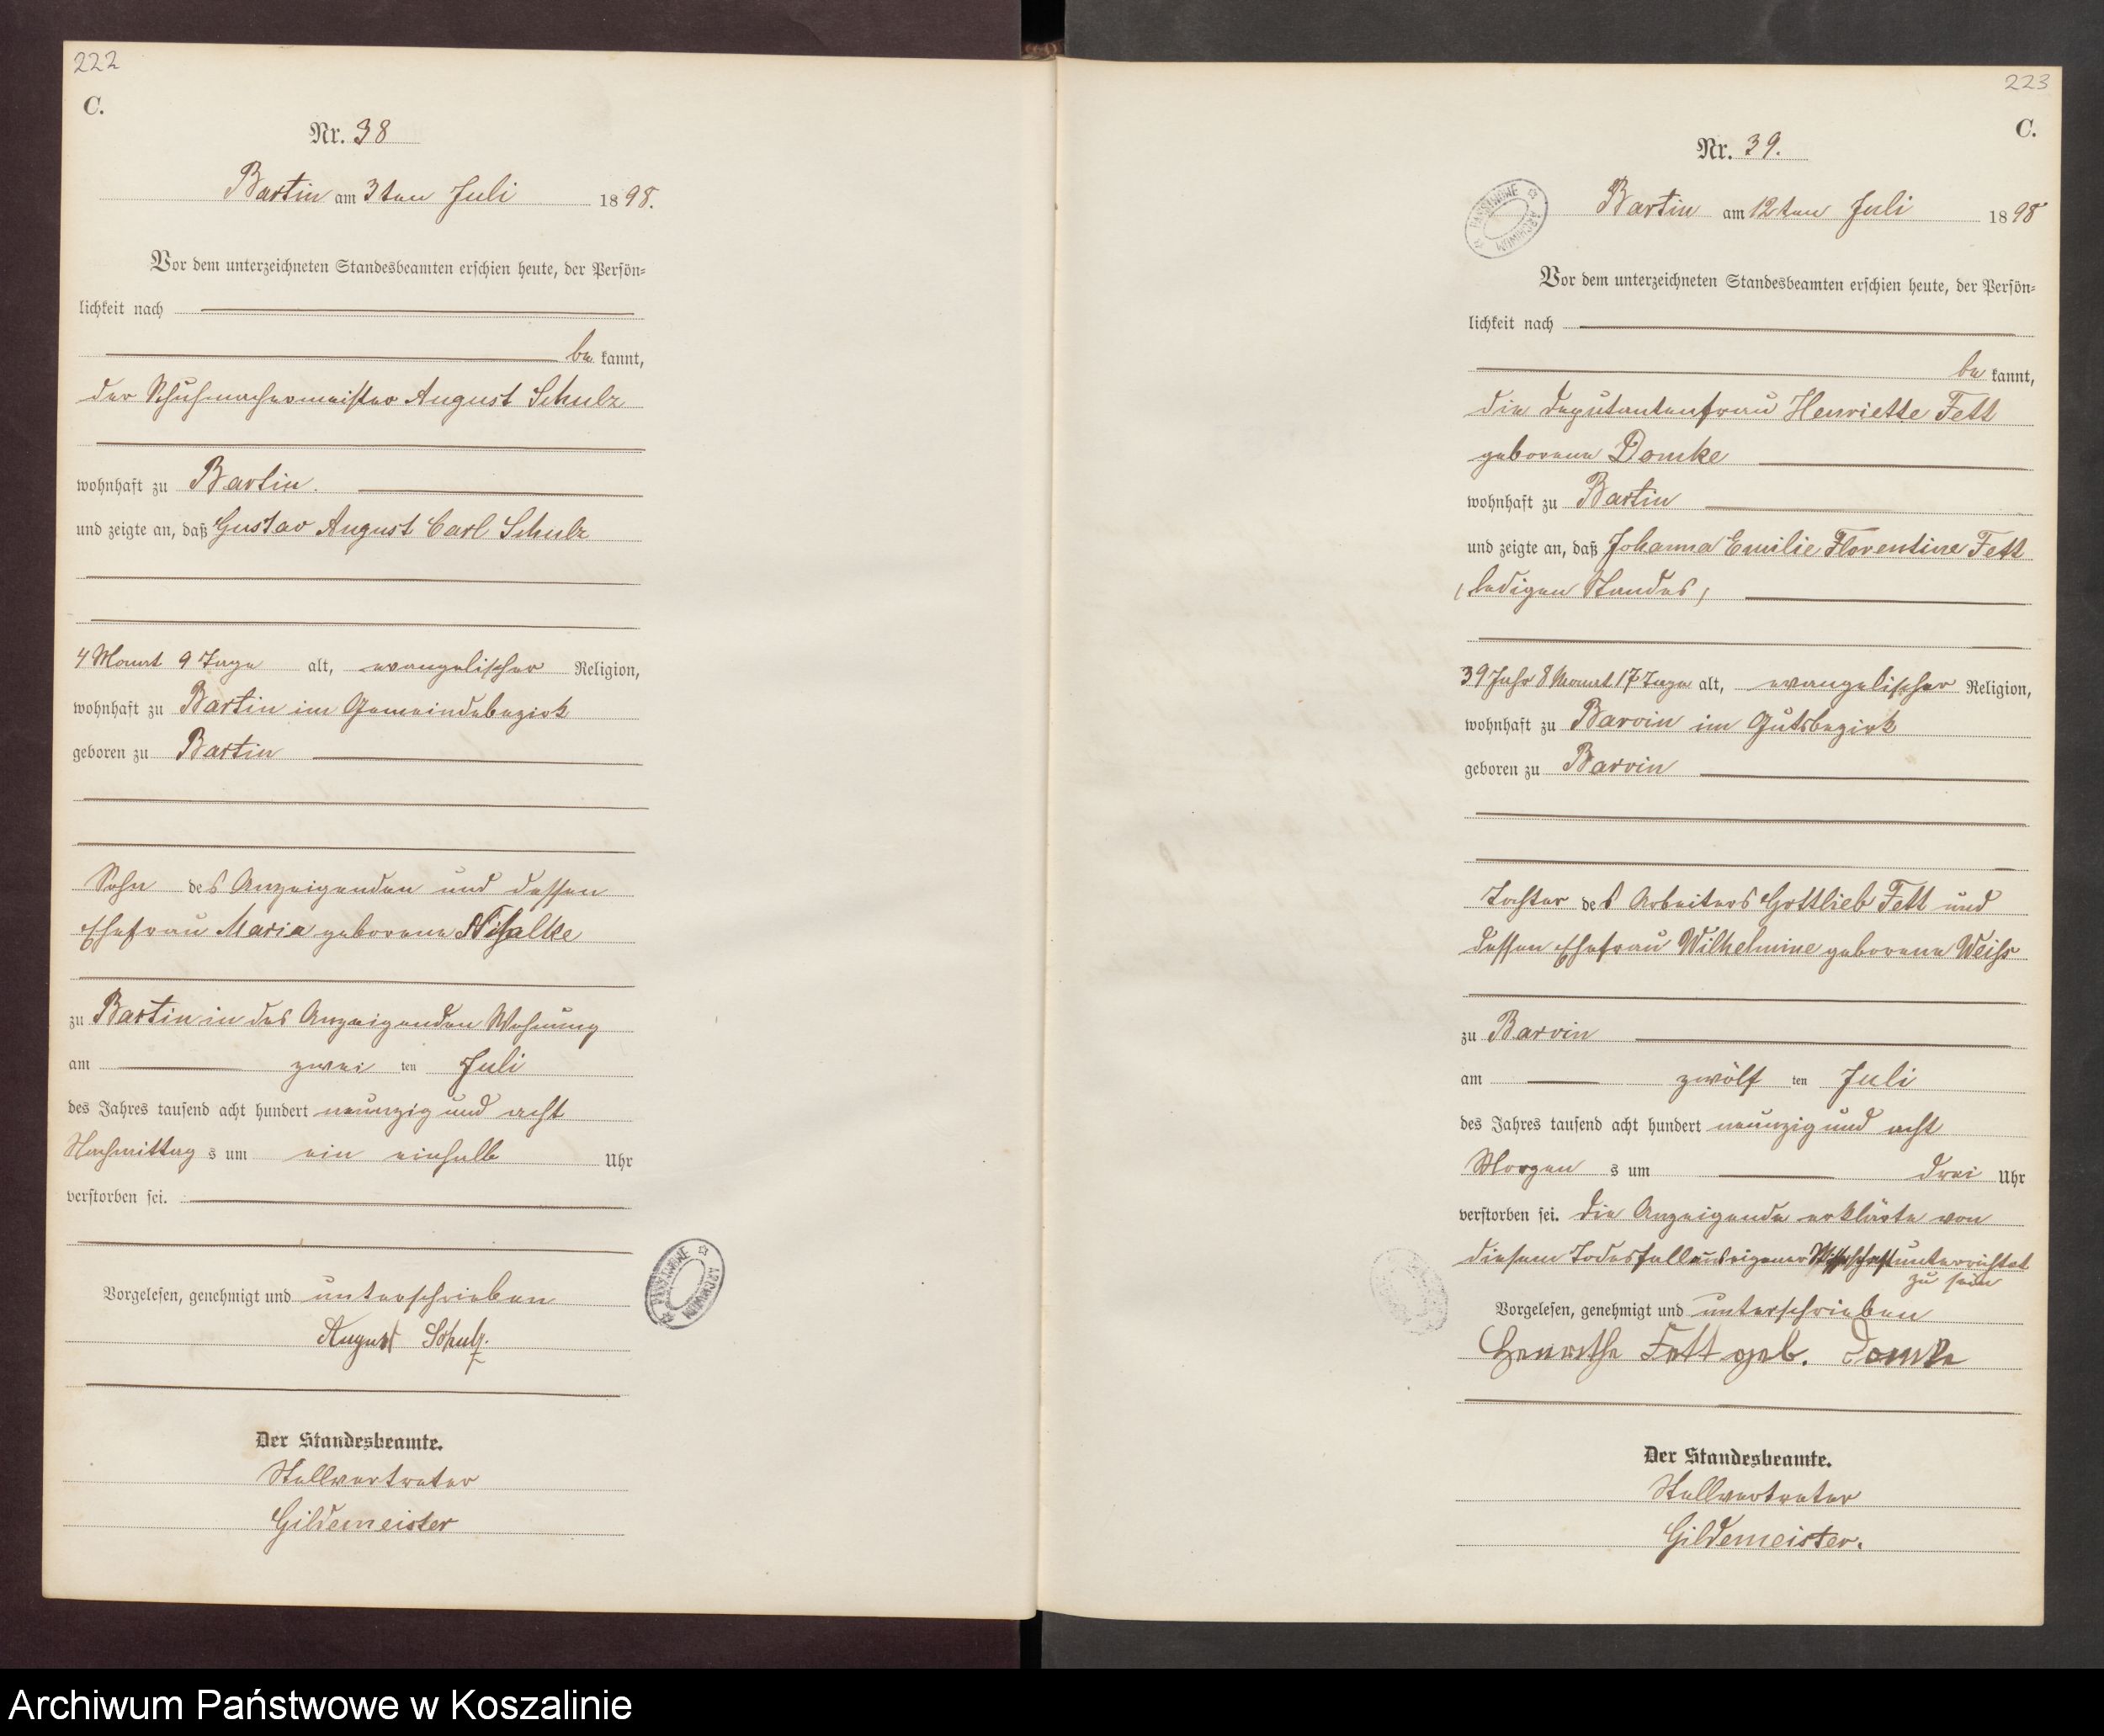 222
C.
Nr. 38
Bartin am 3ten Juli 1898.
Vor dem unterzeichneten Standesbeamten erschien heute, der Persön-
lichkeit nach
be kannt,
der Schuhmachermeister August Schulz
wohnhaft zu Bartin.
und zeigte an, daß Gustav August Carl Schulz
4 Monat 9 Tage alt, evangelischer Religion,
wohnhaft zu Bartin im Gemeindebezirk
geboren zu Bartin
Sohn des Anzeigenden und dessen
Ehefrau Maria geborene
zu Bartin in des Anzeigenden Wohnung
am zwei ten Juli
des Jahres tausend acht hundert neunzig und acht
Nachmittag s um ein einhalb Uhr
verstorben sei.
Vorgelesen, genehmigt und unterschrieben
August Schulz.
Der Standesbeamte.
Stellvertreter
Gildemeister
ARCHIWUM PAŃSTWOWE
223
C.
Nr. 39.
Bartin am 12ten Juli 1898
ARCHIWUM PAŃSTWOWE
Vor dem unterzeichneten Standesbeamten erschien heute, der Persön-
lichkeit nach
be kannt,
die Deputantenfrau Henriette Fett
geborene Domke
wohnhaft zu Bartin
und zeigte an, daß Johanna Emilie Florentine Fett
(ledigen Standes)
39 Jahr 8 Monat 17 Tage alt, evangelischer Religion,
wohnhaft zu Barvin im Gutsbezirk
geboren zu Barvin
Tochter des Arbeiters Gottlieb Fett und
dessen Ehefrau Wilhelmine geborene Weiß
zu Barvin
am zwölf ten Juli
des Jahres tausend acht hundert neunzig und acht
Morgen s um drei Uhr
verstorben sei. Die Anzeigende erklärte von
diesem Todesfall aus eigener Wissenschaft unterrichtet
zu sein
Vorgelesen, genehmigt und unterschrieben
Henriethe Fett geb. Domke
Der Standesbeamte.
Stellvertreter
Gildemeister.
Archiwum Państwowe w Koszalinie